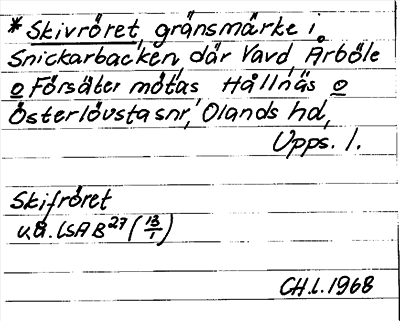 * Skivröret, gränsmärke i
Snickarbacken, där Vavd, Årböle
o Försäter mötas Hållnäs o
Österlövsta snr, Olands hd,
Upps. l.
Skifröret
u.å. LSA B 27 (13/1)
CH.L. 1968